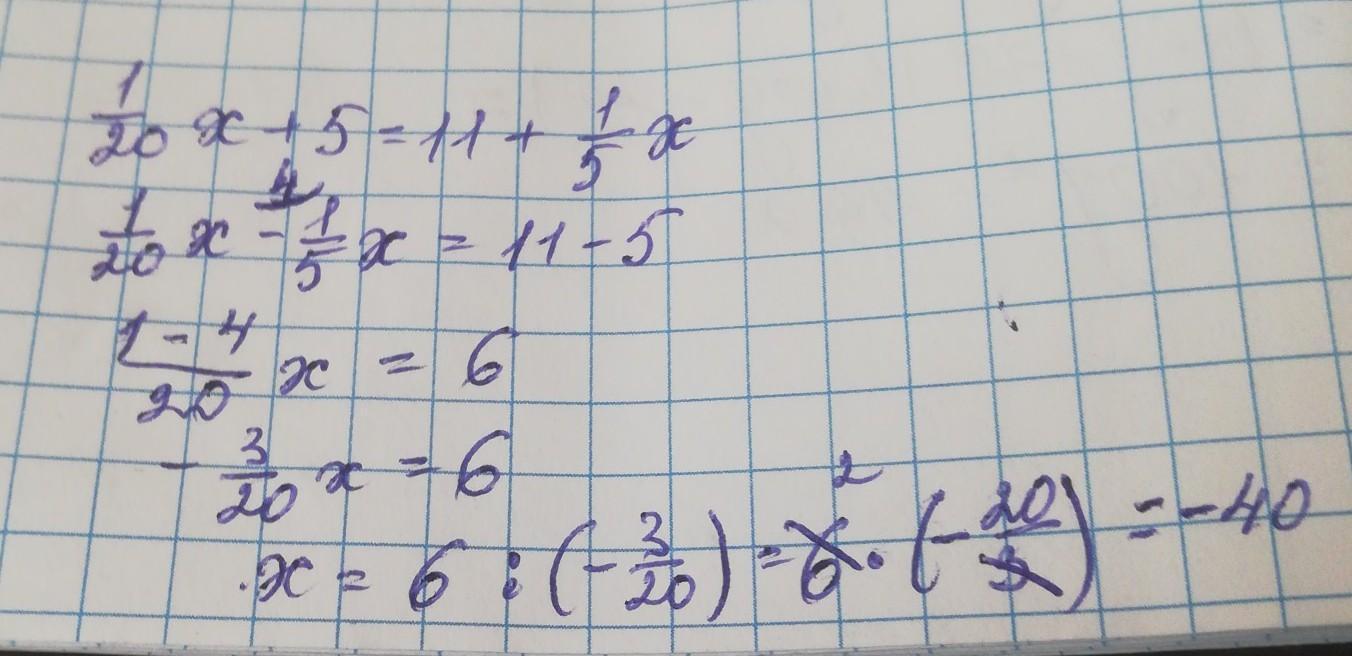 1/20 x + 5 = 11 + 1/5 x
1/20 x - 4 1/5 x = 11 - 5
1 - 4/20 x = 6
- 3/20 x = 6
x = 6 : (- 3/20) = 6 2 · (- 20/3) = - 40